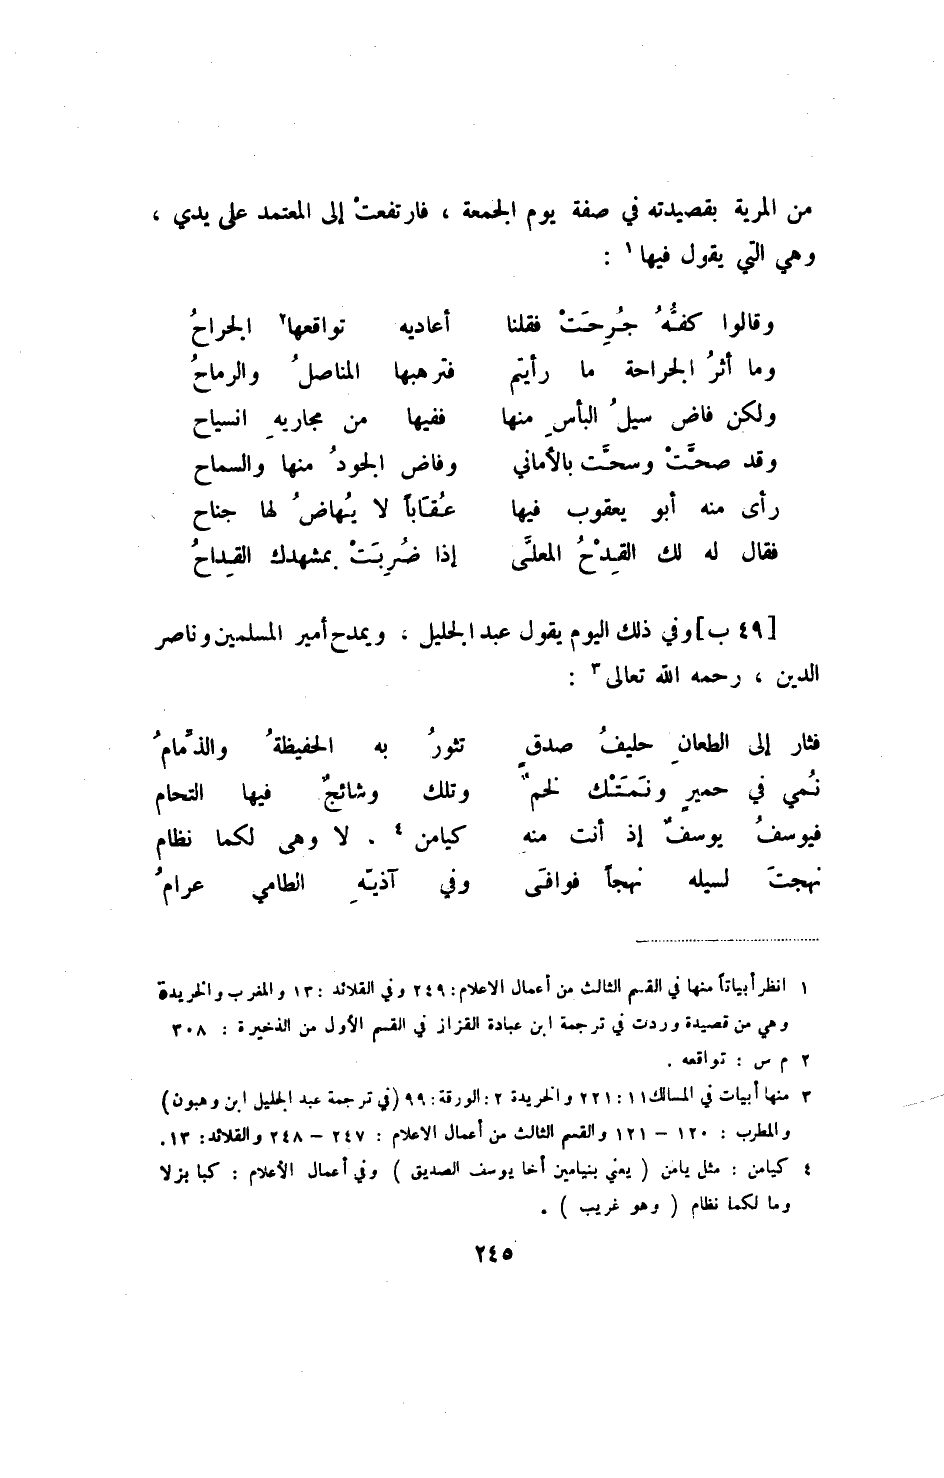 من المرية بقصيدته في صفة يوم الجمعة ، فارتفعتْ إلى المعتمد على يدي ،
وهي التي يقول فيها ١ :
وقالوا كفُّهُ جُرِحَتْ فقلنا أعاديه تواقعها ٢ الجراحُ
وما أثرُ الجراحة ما رأيتم فترهبها المناصلُ والرماحُ
ولكن فاض سيلُ البأسِ منها ففيها من مجاريهِ انسياح
وقد صحتَّْ وسحتَّت بالأماني وفاض الجودُ منها والسماح
رأى منه أبو يعقوب فيها عُقَاباً لا يُهاضُ لها جناح
فقال له لك القِدْحُ المعلَّى إذا ضُرِبَتْ بمشهدك القِداحُ
[٤٩ ب] وفي ذلك اليوم يقول عبد الجليل ، ويمدح أمير المسلمين وناصر
الدين ، رحمه الله تعالى ٣ :
فثار إلى الطعانِ حليفُ صدقٍ تثورُ به الحفيظةُ والذِّمامُ
نُمي في حميرٍ ونَمَتْك لخمٌ وتلك وشائجٌ فيها التحام
فيوسفُ يوسفٌ إذ أنت منه كيامن ٤ . لا وهى لكما نظام
نهجتَ لسيله نهجاً فوافَى وفي آذيّهِ الطامي عرامُ
١ انظر أبياتاً منها في القسم الثالث من أعمال الاعلام : ٢٤٩ وفي القلائد : ١٣ والمغرب والخريدة
وهي من قصيدة وردت في ترجمة ابن عبادة القزاز في القسم الأول من الذخيرة : ٣٠٨
٢ م س : تواقعه .
٣ منها أبيات في المسالك ١١ : ٢٢١ والخريدة ٢ : الورقة : ٩٩ (في ترجمة عبد الجليل ابن وهبون)
والمطرب : ١٢٠ – ١٢١ والقسم الثالث من أعمال الاعلام : ٢٤٧ – ٢٤٨ والقلائد : ١٣.
٤ كيامن : مثل يامن ( يعني بنيامين أخا يوسف الصديق ) وفي أعمال الأعلام : كبا بزلا
وما لكما نظام ( وهو غريب ) .
٢٤٥